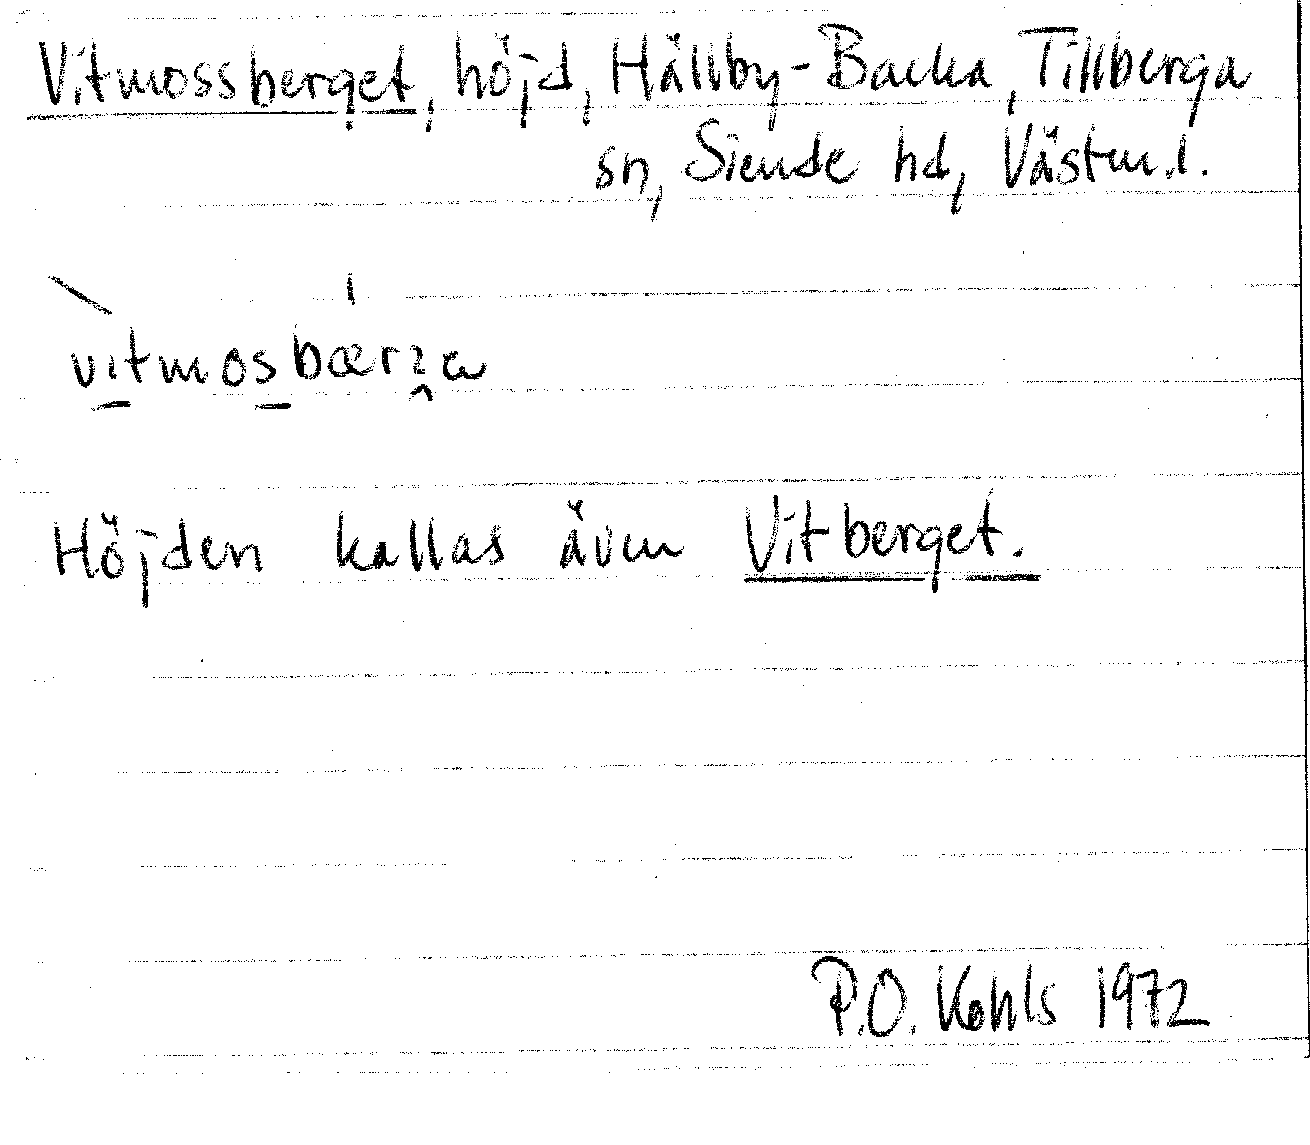 Vitmossberget, höjd, Hällby-Backa, Tillberga
sn, Siende hd, Västm.l.
vitmosbærʒa
Höjden kallas även Vitberget.
P.O. Kohls 1972